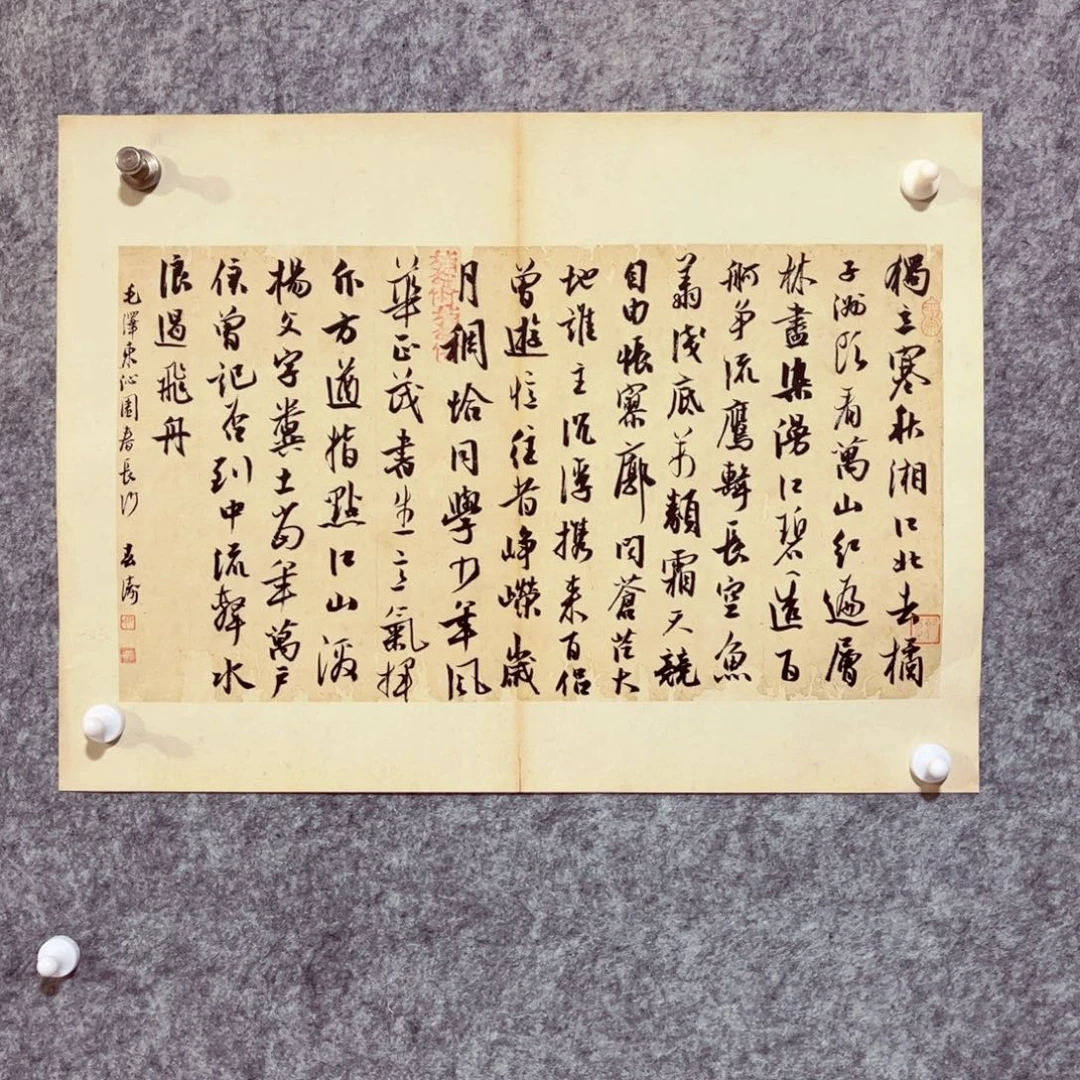 獨立寒秋湘江北去橘
子洲頭看萬山紅遍層
林盡染漫江碧透百
舸爭流鷹擊長空魚
翔淺底万類霜天競
自由悵寥廓問蒼茫大
地誰主沉浮携來百侶
曾遊憶往昔崢嶸歲
月稠恰同學少年風
華正茂書生意氣揮
斥方遒指點江山激
揚文字糞土當年萬戶
侯曾記否到中流擊水
浪遏飛舟
毛澤東沁園春長沙